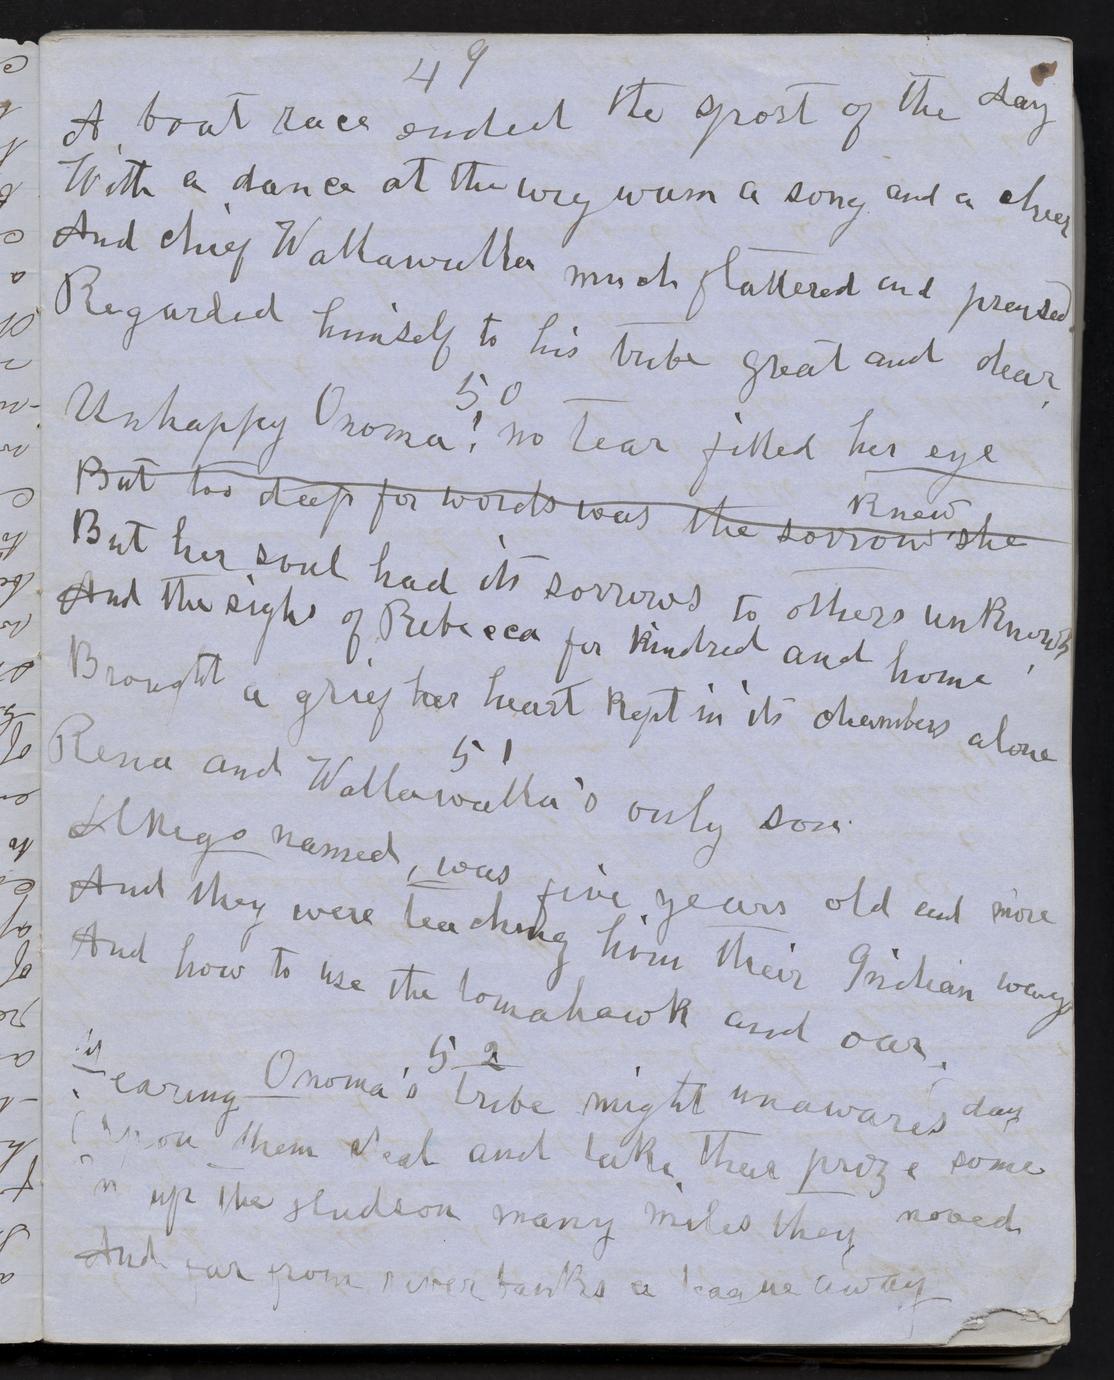 49
A boat race ended the sport of the day
With a dance at the wig wam a song and a cheer
And chief Wallawalla much flattered and preased
Regarded himself to his tribe great and dear,
50
Unhappy Onoma! no tear filled her eye
But too deep for words was the sorrow she knew
But her soul had its sorrows to others unknown
And the sighs of Rebecca for kindred and home,
Brought a grief her heart kept in its chambers alone
51
Rena and Wallawalla's only son
named, was five years old and more
And they were teaching him their Indian ways
And how to use the tomahawk and oar,
52
earing Onoma's tribe might unawares
pon them steal and take their prize some day
up the Hudson many miles they moved
And far from river banks a league away